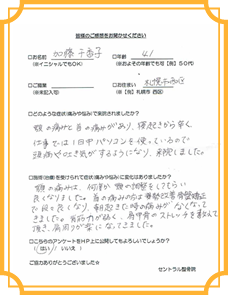 皆様のご感想をお聞かせください
□お名前 加藤 千香子 □年齢 41
(※イニシャルでもOK) (※およその年齢でも可【例】50代)
□ご職業 □お住まい 札幌市
(※未記入可) (※【例】札幌市 西区)
□どのような症状(痛みや悩み)で来院されましたか?
顎の痛みと首の痛みがあり、寝起きから辛く
仕事では1日中パソコンを使っているので
頭痛や吐き気がするようになり、来院しました。
□施術(治療)を受けられて症状(痛みや悩み)に変化はありましたか?
顎の痛みは、何度か顎の調整をしてもらい
良くなりました。首の痛みの方は骨盤矯正
で段々良くなり、朝起きた時の痛みがなくなって
きました。首が、肩甲骨のストレッチを教えて
頂き、肩周りが楽になってきました。
□こちらのアンケートをHP上に公開してもよろしいでしょうか?
(はい / いいえ)
ご協力ありがとうございました☆
セントラル整骨院